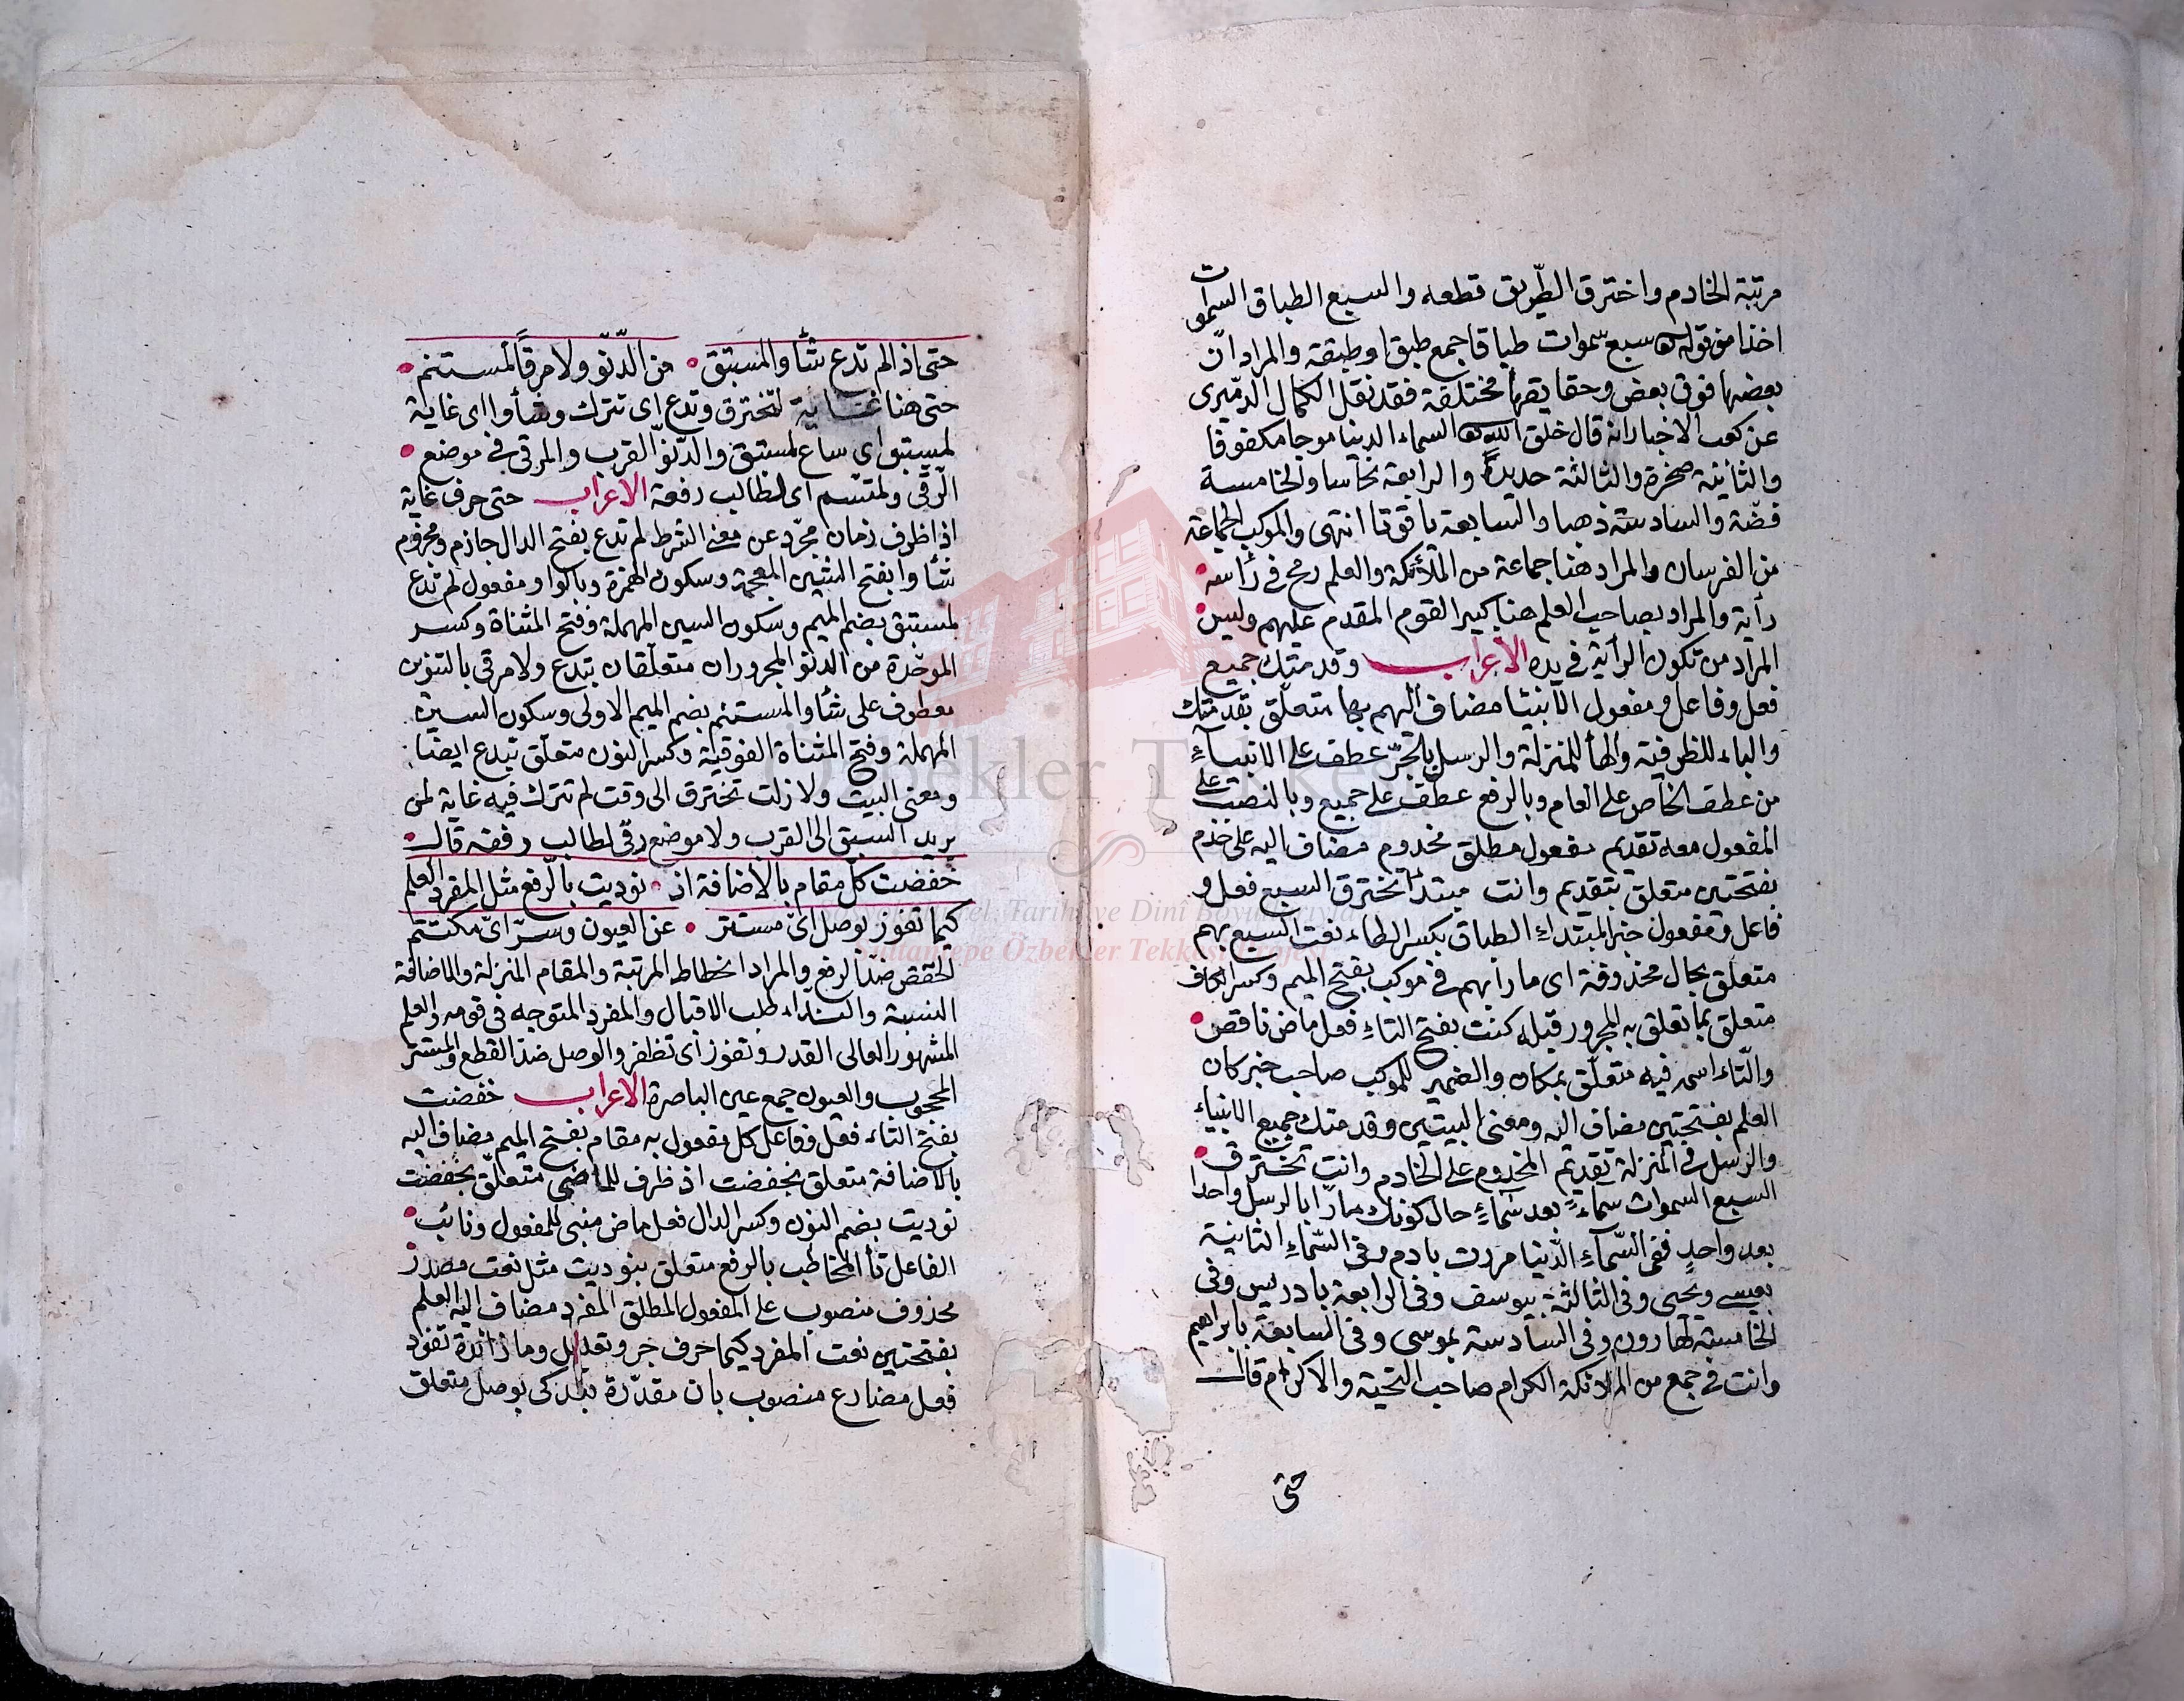 مرتبة الخادم واخترق الطّريق قطعه والسبع الطباق السموات
اخذا من قوله تع سبع سموات طباقا جمع طبق او طبقة والمراد انّ
بعضها فوق بعض وحقايقها مختلفة فقد نقل الكمال الدّميرى
عن كعب الاخبار انه قال خلق الله تع السماء الدنيا موجا مكفوفا
والثانية صخرة والثالثة حديدا والرابعة نحاسا والخامسة
فضّة والسادسة ذهبا والسابعة ياقوتا انتهى والموكب الجماعة
من الفرسان والمراد هنا جماعة من الملائكة والعلم رمح فى رأسه
رأية والمراد بصاحب العلم هنا كبير القوم المقدم عليهم وليس
المراد من تكون الرأية فى يده الاعراب وقدمتك جميع
فعل وفاعل ومفعول الانبيا مضاف اليهم بها متعلق بقدمتك
والباء للظرفية والها للمنزلة والرسل بالجرّ عطف على الانبيآء
من عطف الخاص على العام وبالرفع عطف على جميع وبالنصب على
المفعول معه تقديم مفعول مطلق مخدوم مضاف اليه على خدم
بفتحتين متعلق بتقديم وانت مبتدأ تخترق السبع فعل و
فاعل ومفعول خبر المبتداء الطباق بكسر الطاء نعت السبع بهم
متعلق بحال محذوفة اى مارا بهم فى موكب بفتح الميم وكسر الكاف
متعلق بما تعلق به المجرور قبله كنت بفتح التاء فعل ماض ناقص
والتّاء اسمه فيه متعلّق بمكان والضمير للموكب صاحب خبر كان
العلم بفتحتين مضاف اليه ومعنى البيتين وقدمتك جميع الانبياء
والرسل فى المنزلة تقديم المخدوم على الخادم وانت تخترق
السبع السموات سماءً بعد سماءٍ حال كونك مارّا بالرسل واحدا
بعد واحدٍ ففى السّماءِ الدّنيا مررت بادم وفى السّماءِ الثانية
بعيسى ويحيى وفى الثالثة بيوسف وفى الرابعة بادريس وفى
الخامسة بهارون وفى السادسة بموسى وفى السابعة بابراهيم
وانت فى جمع من الملائكة الكرام صاحب التحية والاكرام قال
حتى
حتى اذا لم تدع شأوا لمستبق من الدّنّو ولا مرقًا لمستنم
حتى هنا غاية لتخترق وتدع اى تترك وشأوا اى غاية
لمستبق اى ساع لمستبق والدّنوّ القرب والمرقى فى موضع
الرّقى ولمتنسم اى لطالب رفعة الاعراب حتى حرف غاية
اذا ظرف زمان مجرّد عن معنى الشرط لم تدع بفتح الدال جازم ومجزوم
شأوا بفتح الشين المعجمة وسكون الهمزة وبالواو مفعول لم تدع
لمستبق بضم الميم وسكون السين المهملة وفتح المثناة وكسر
الموحّدة من الدنو المجروران متعلّقان بتدع ولا مرقى بالتنوين
معطوف على شأوا لمستنم بضم الميم الاولى وسكون السين
المهملة وفتح المثناة الفوقية وكسر النون متعلّق بتدع ايضًا
ومعنى البيت ولا زلت تخترق الى وقت لم تترك فيه غاية لمن
يريد السبق الى القرب ولا موضع رقى لطالب رفعة قال
خفضت كلّ مقام بالاضافة اذ نوديت بالّرفع مثل المفرد العلم
كيما تفوز بوصل اىّ مستتر عن العيون وسرّ اىّ مكتتم
الخفض ضدّ الرفع والمراد انحطاط المرتبة والمقام المنزلة والاضافة
النسبة والنداء طلب الاقبال والمفرد المتوجه فى قومه والعلم
المشهور العالى القدر وتفوز اى تظفر والوصل ضدّ القطع والمستتر
المحجوب والعيون جمع عين الباصرة الاعراب خفضت
بفتح التاء فعل وفاعل كل مفعول به مقام بفتح الميم مضاف اليه
بالاضافة متعلّق بخفضت اذ ظرف للماضى متعلّق بخفضت
نوديت بضم النون وكسر الدال فعل ماض مبنى للمفعول ونائب
الفاعل تأ المخاطب بالرفع متعلق بنوديت مثل نعت مصدر
محذوف منصوب على المفعول المطلق المفرد مضاف اليه العلم
بفتحتين نعت المفرد كيما حرف جر وتعليل وما زائدة تفوز
فعل مضارع منصوب بان مقدّرة بعد كى بوصل متعلق
Özbekler Tekkesi
Sosyokültürel, Tarihi ve Dini Boyutlarıyla
Sultantepe Özbekler Tekkesi Projesi